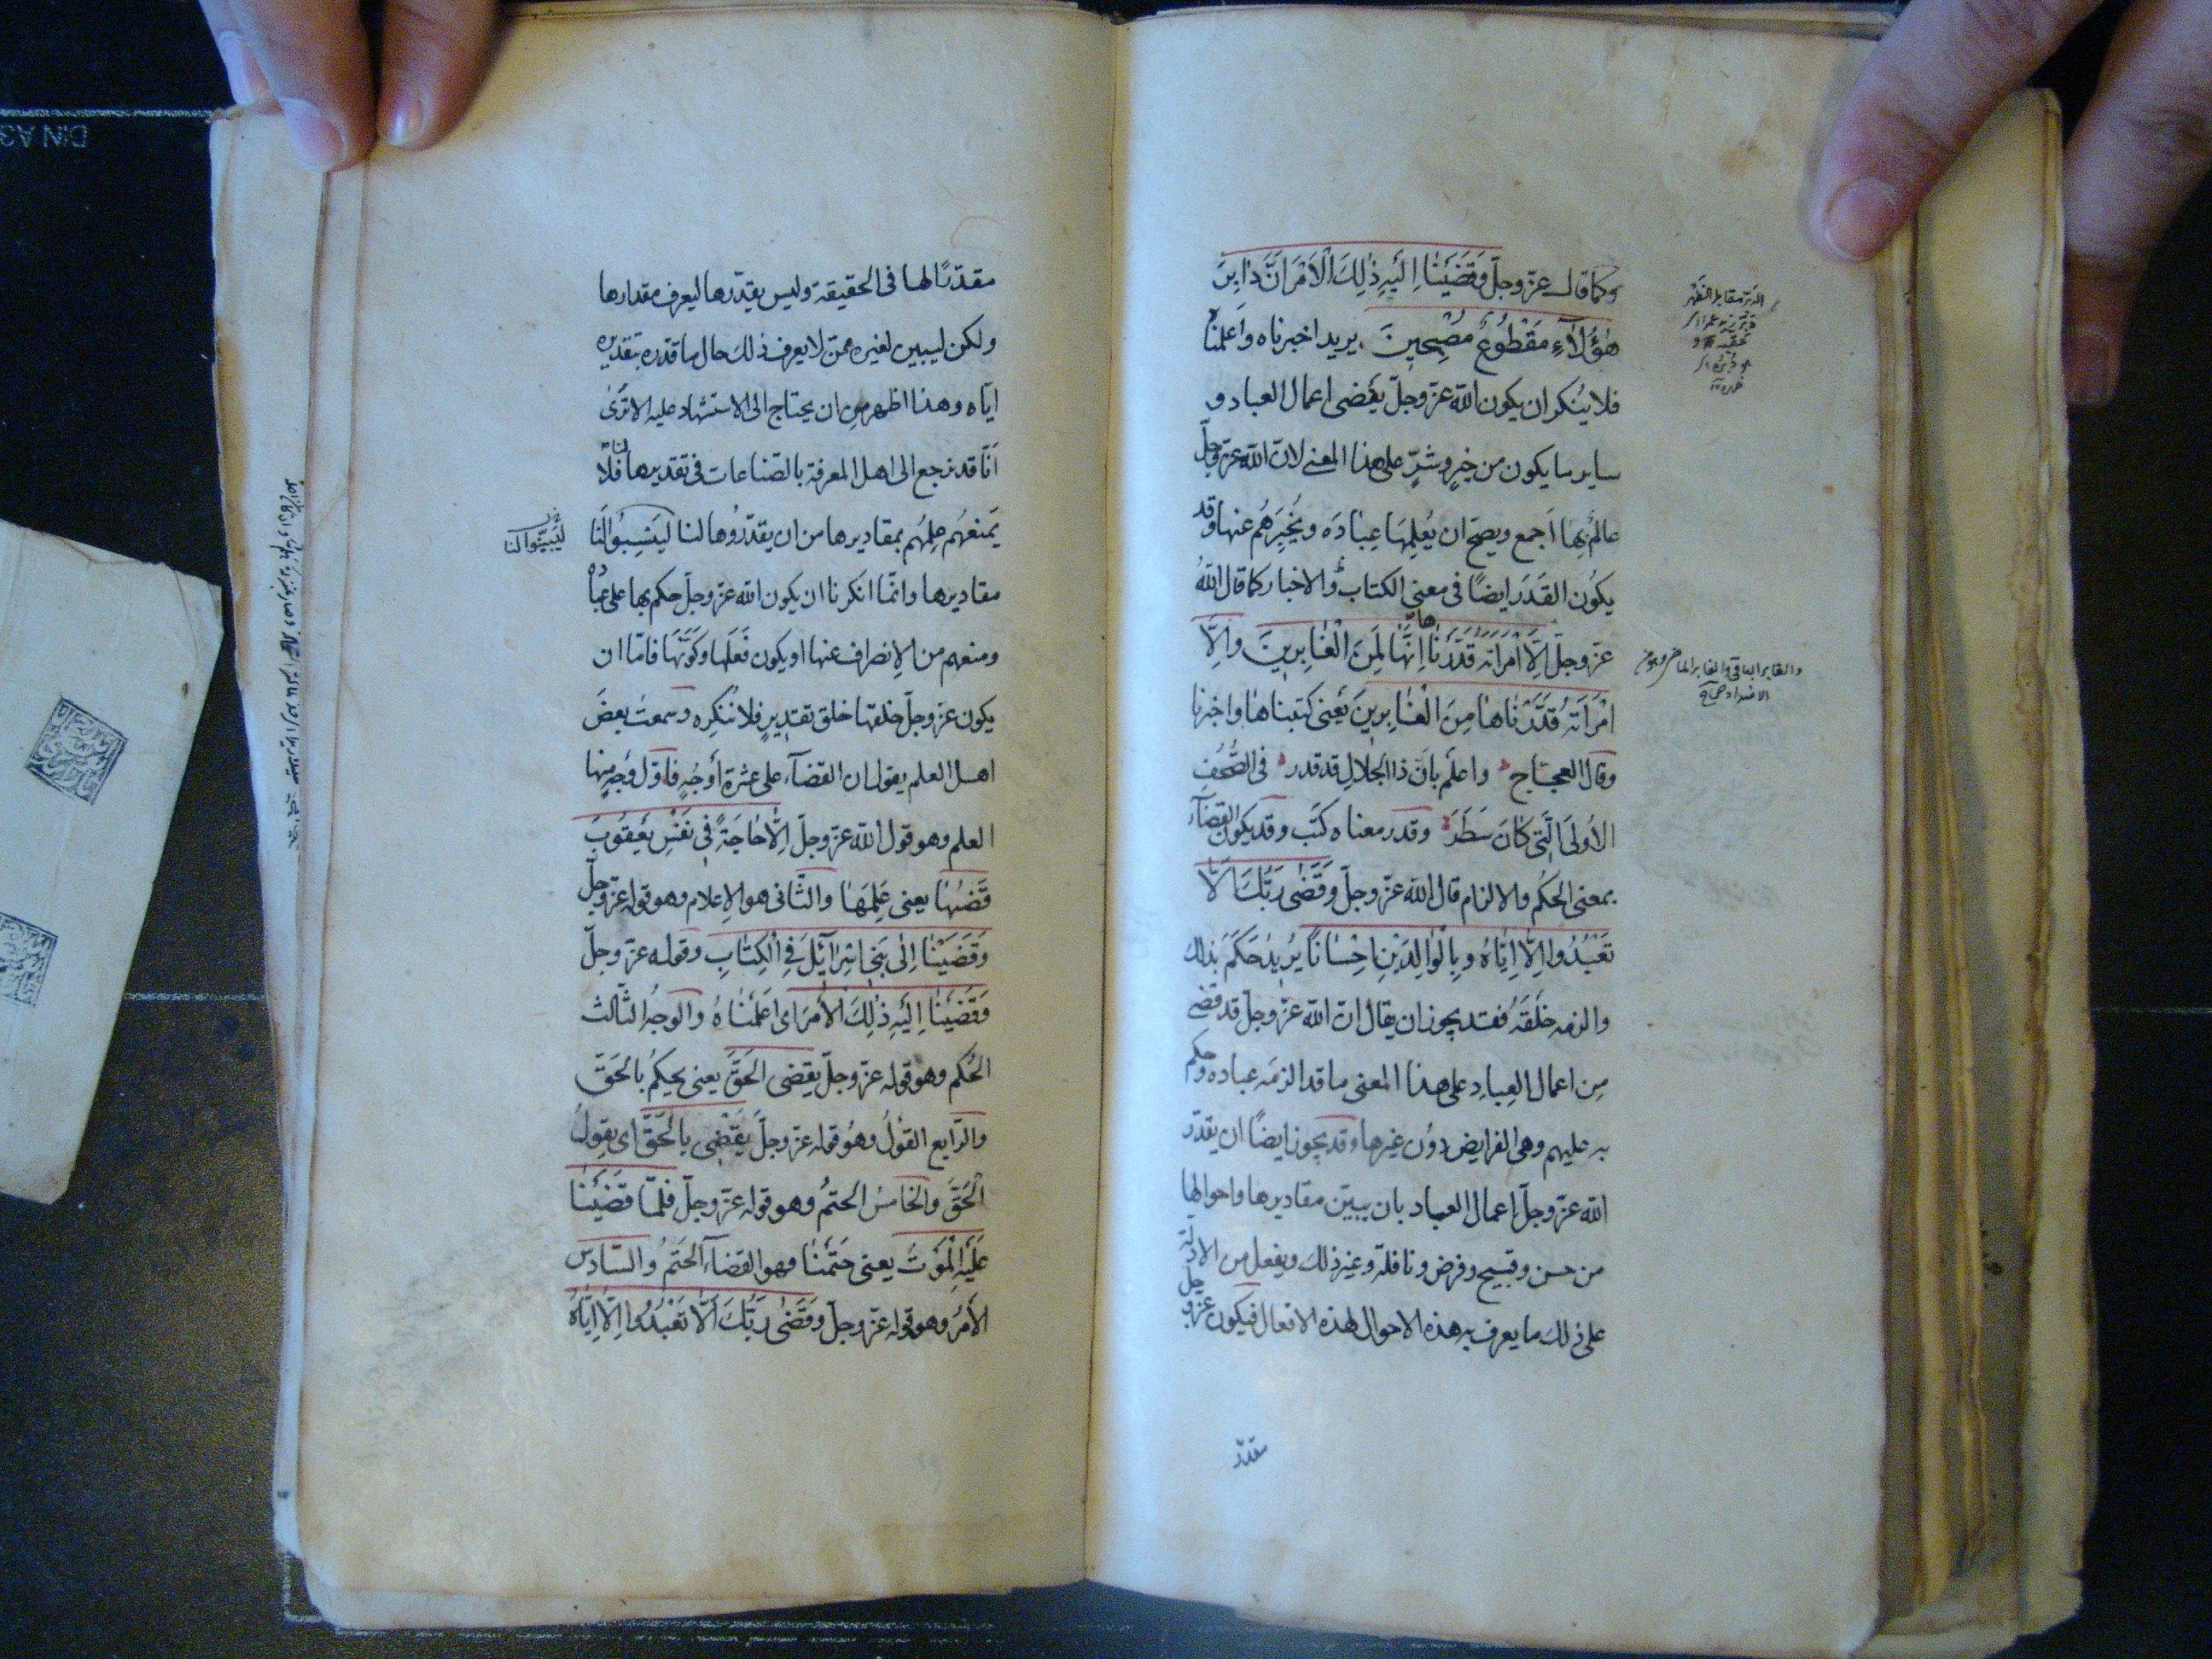 وكما قال عزّ وجلّ وَقَضَيْنَا اِلَيْهِ ذٰلِكَ الْاَمْرَ اَنَّ دَابِرَ
هٰؤُلَآءِ مَقْطُوعٌ مُصْبِحِينَ يريد اخبرناه واَعلمناه
فلا يُنكر ان يكون اللّه عزّ وجلّ يقضى اعمال العباد و
ساير ما يكون من خيرٍ وشرٍّ على هذا المعنى لانّ اللّه عزّ وجلّ
عالمٌ بِهَا اَجمع ويصحّ ان يُعلِمَهَا عِبَادَه ويُخبِرَهُم عنها وقد
يكُون القَدَرَ ايضًا فى معنى الكتاب والاخبار كما قال اللّهُ
عزّ وجلّ اِلَّا امْرَاَتَهُ قَدَّرْنَا اِنَّهَا لَمِنَ الْغَابِرِينَ واِلَّا
امْرَاَتَهُ قَدَّرْنَاهَا مِنَ الْغَابِرِينَ يَعنى كتبناها واخبرنا
وقال العجّاج واعلَم بانّ ذا الجَلالِ قد قدر فى الصُّحُفِ
الاُولَى الَّتِى كَانَ سَطَرَ وقدر معناه كتَب وقد يكون القضآء
بمعنى الحكُم والالزام قال اللّه عزّ وجلّ وَقَضٰى رَبُّكَ اَلَّا
تَعْبُدُوا اِلَّا اِيَّاهُ وبِالْوَالِدَيْنِ اِحْسَانًا يُرِيدُ حَكَمَ بذلك
والزمه خَلقَهُ فقد يجوز ان يقال انّ اللّه عزّ وجلّ قد قضى
مِن اعمال العِبادِ على هذا المعنى ما قد الزمَه عباده وحكم
به عليهم وهى الفرايض دوُن غيرها وقد يجوز ايضًا ان يقدّر
اللّه عزّ وجلّ اعمال العباد بان يبيّن مقاديرها واحوالها
من حسن وقبيح وفرض ونافلة وغير ذلك ويفعل من الادلّة
على ذلك ما يعرف به هذه الاحوال لهذه الافعال فيكون عزّ وجلّ
مقدّر
والغابر الباقى والغابر الماضى وهو من
الاضداد صحاح
مقدّرًا لها فى الحقيقة وليس يقدّرها ليعرف مقدارها
ولكن ليبين لغيره ممّن لا يعرف ذلك حال ما قدّره بتقديره
ايّاه وهذا اظهر مِن ان يحتاج الى الاستشهاد عليه الا ترَىٰ
اَنّا قد نرجع الى اهل المعرفة بالصّناعات فى تقديرها لنا فلا
يَمنعهُم عِلمُهُم بمقاديرها من ان يقدّرُوها لنا لِيَنسِبُوا لَنَا
لِيُبَيِّنُوا لنا
مقاديرها وانّما انكرنا ان يكون اللّه عزّ وجلّ حكم بها على عباده
ومنعهم من الاِنصراف عنها او يكون فَعَلَها وكَوَّنَها فامّا ان
يكون عزّ وجلّ خلقها خلق تقديرٍ فلا نُنكِره وسمعت بعضَ
اهل العلم يقول ان القضآء على عشرة اَوجُهٍ فاوّل وَجهٍ منها
العلم وهو قول اللّه عزّ وجلّ اِلَّا حَاجَةً فِى نَفْسِ يَعْقُوبَ
قَضٰهَا يعنى عَلِمَهَا والثّانى هو الاِعلام وهو قوله عزّ وجلّ
وَقَضَيْنَا اِلٰى بَنِى اِسْرَآئِلَ فِى الْكِتَابِ وقوله عزّ وجلّ
وَقَضَيْنَا اِلَيْهِ ذٰلِكَ الْاَمْرَ اى اَعلَمنَاهُ والوجهُ الثّالث
الحُكم وهو قوله عزّ وجلّ يقضى الحَقَّ يعنى يحكُم بالحَقّ
والرّابع القوْلُ وهُو قوله عزّ وجلّ يَقْضِى بِالْحَقِّ اى يقولُ
الحَقَّ والخامسُ الحتمُ وهو قوله عزّ وجلّ فَلَمَّا قَضَيْنَا
عَلَيْهِ الْمَوْتَ يعنى حَتَمْنَا فهو القضآء الحَتمُ والسّادس
الأمرُ وهو قوله عزّ وجلّ وَقَضٰى رَبُّكَ اَلَّا تَعْبُدُوا اِلَّا اِيَّاهُ
DIN A3